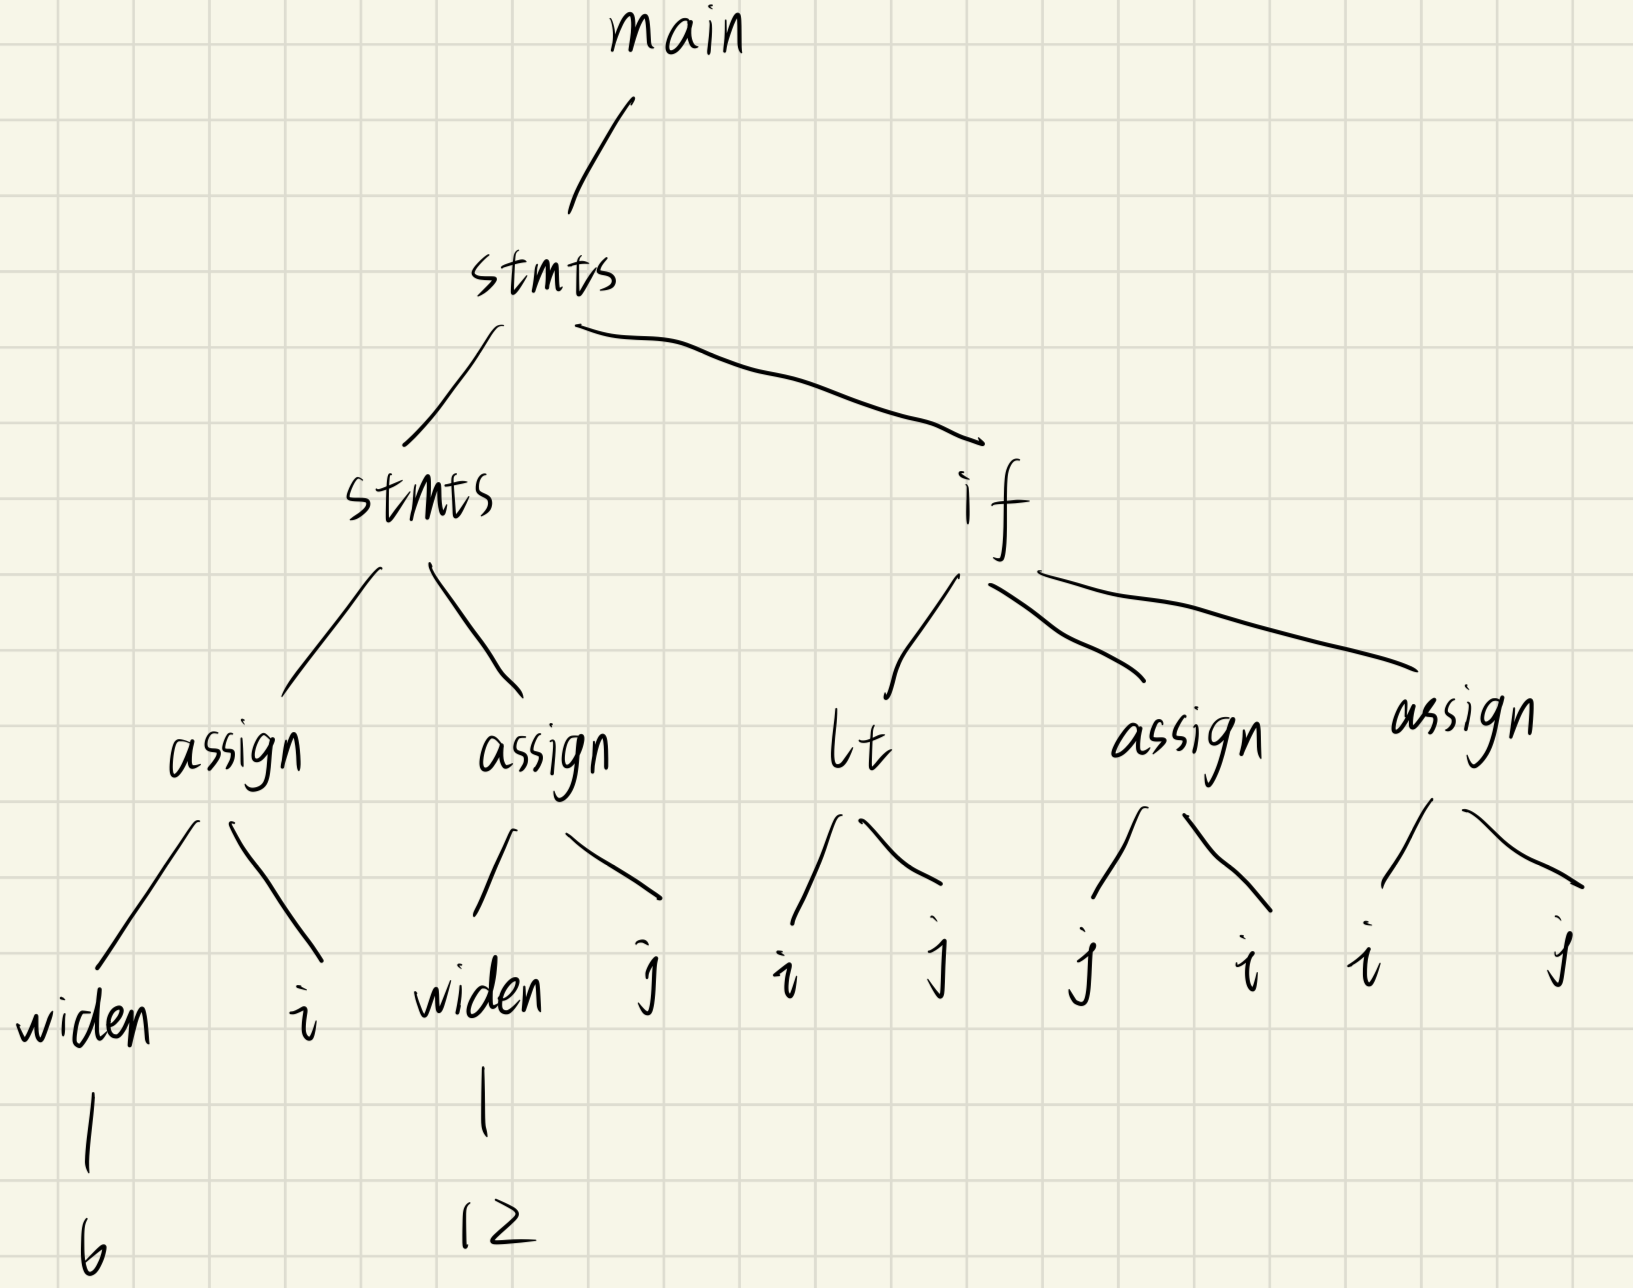 main
stmts
stmts if
assign assign lt assign assign
widen i widen j i j j i i j
6 12